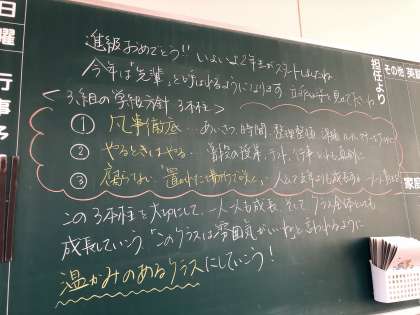 日
曜
行
事
予
担任より
その他
家庭
進級おめでとう!! いよいよ2年生がスタートしましたね
今年は「先輩」と呼ばれるようになります
<3組の学級方針 3本柱>
① 凡事徹底… あいさつ、時間、整理整頓
② やるときはやる… 普段の授業、テスト、行事
③ 腐らない "置かれた場所で咲く"
この3本柱を大切にして、一人一人も成長、そしてクラス全体としても
成長していこう。「このクラスは雰囲気がいいね」と言われるように
温かみのあるクラスにしていこう!